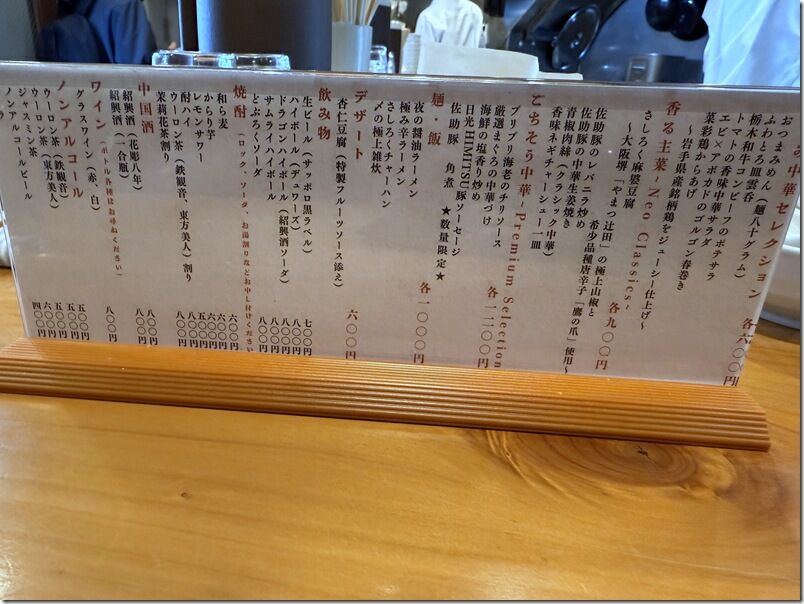 み中華セレクション 各六〇〇円
おつまみめん(麺八十グラム)
ふわとろ皿雲呑
栃木和牛コンビーフのポテサラ
トマトの香味中華サラダ
エビ×アボカドのゴルゴン春巻き
菜彩鶏から揚げ
～岩手県産銘柄鶏をジューシー仕上げ～
香る主菜-Neo Classics- 各九〇〇円
さしろく麻婆豆腐
～大阪堺「やまつ辻田」の極上山椒と
希少品種唐辛子「鷹の爪」使用～
佐助豚のレバニラ炒め
佐助豚の中華生姜焼き
青椒肉絲(クラシック中華)
香味ネギチャーシュー皿
ごちそう中華-Premium Selection- 各一一〇〇円
プリプリ海老のチリソース
厳選まぐろの中華づけ
海鮮の塩香り炒め
日光HIMITSU豚ソーセージ
佐助豚 角煮 ★数量限定★
麺・飯 各一〇〇〇円
夜の醤油ラーメン
極み辛ラーメン
さしろくチャーハン
〆の極上雑炊
デザート
杏仁豆腐(特製フルーツソース添え) 六〇〇円
飲み物
生ビール(サッポロ黒ラベル) 七〇〇円
ハイボール(デュワーズ) 八〇〇円
ドラゴンハイボール(紹興酒ソーダ) 八〇〇円
サムライハイボール 八〇〇円
どぶろくソーダ 八〇〇円
焼酎(ロック、ソーダ、お湯割りなどお申し付けください)
和ら麦 六〇〇円
からり芋 六〇〇円
レモンサワー 六〇〇円
酎ハイ 五〇〇円
ウーロン茶(鉄観音、東方美人)割り 八〇〇円
茉莉花茶割り 八〇〇円
中国酒
紹興酒(花彫八年) 八〇〇円
紹興酒(一合瓶) 八〇〇円
ワイン(ボトル各種はお尋ねください)
グラスワイン(赤、白) 八〇〇円
ノンアルコール
ウーロン茶(鉄観音) 五〇〇円
ウーロン茶(東方美人) 五〇〇円
ジャスミン茶 五〇〇円
ノンアルコールビール 六〇〇円
四〇〇円